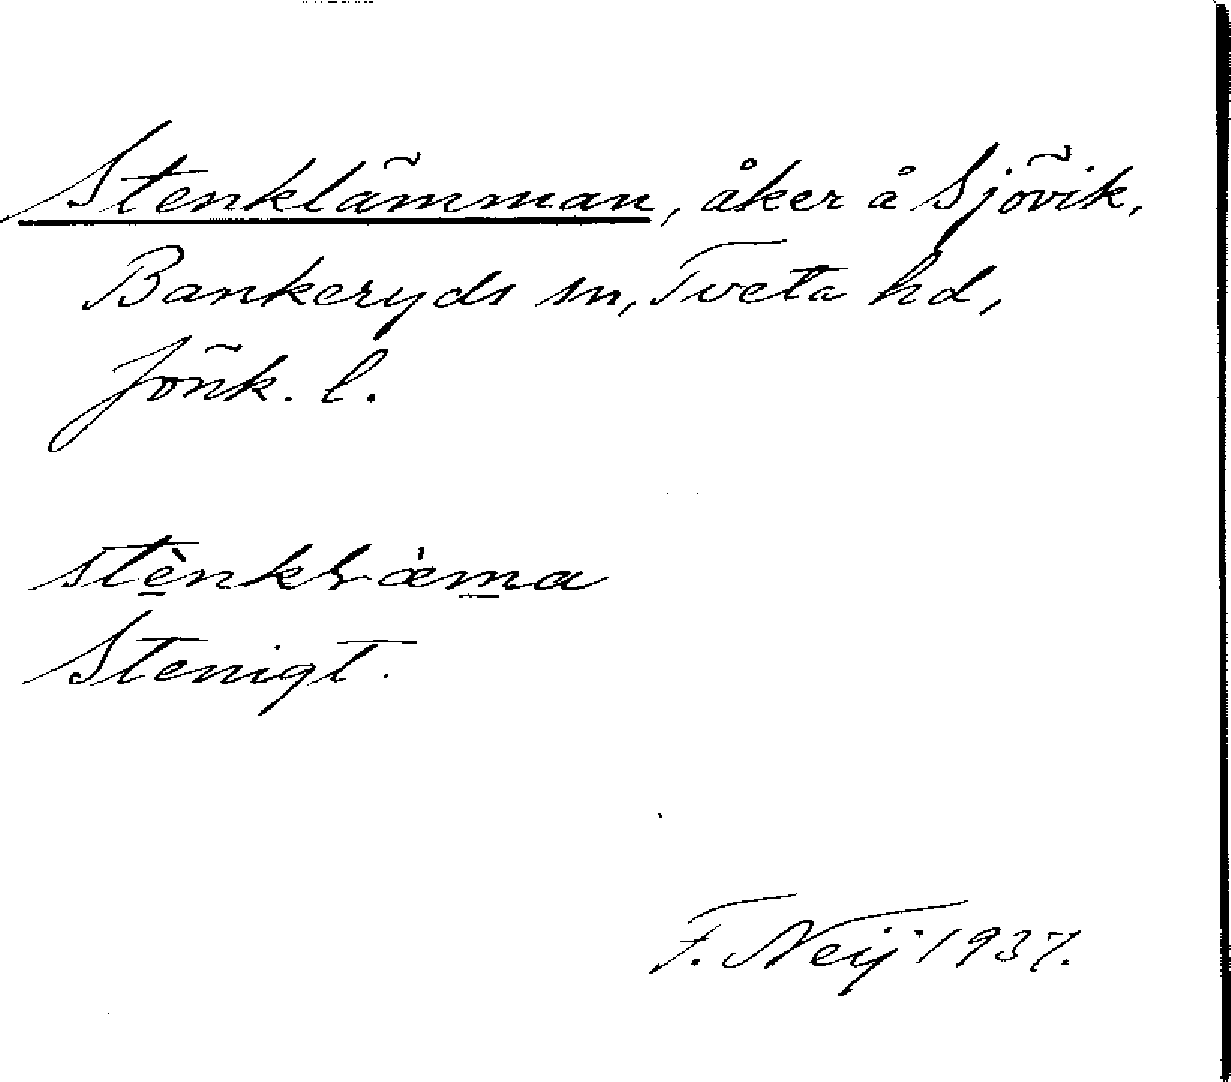 Stenklämman, åker å Sjövik,
Bankeryds sn, Tveta hd,
Jönk. l.
Stenigt.
F. Neij 1937.